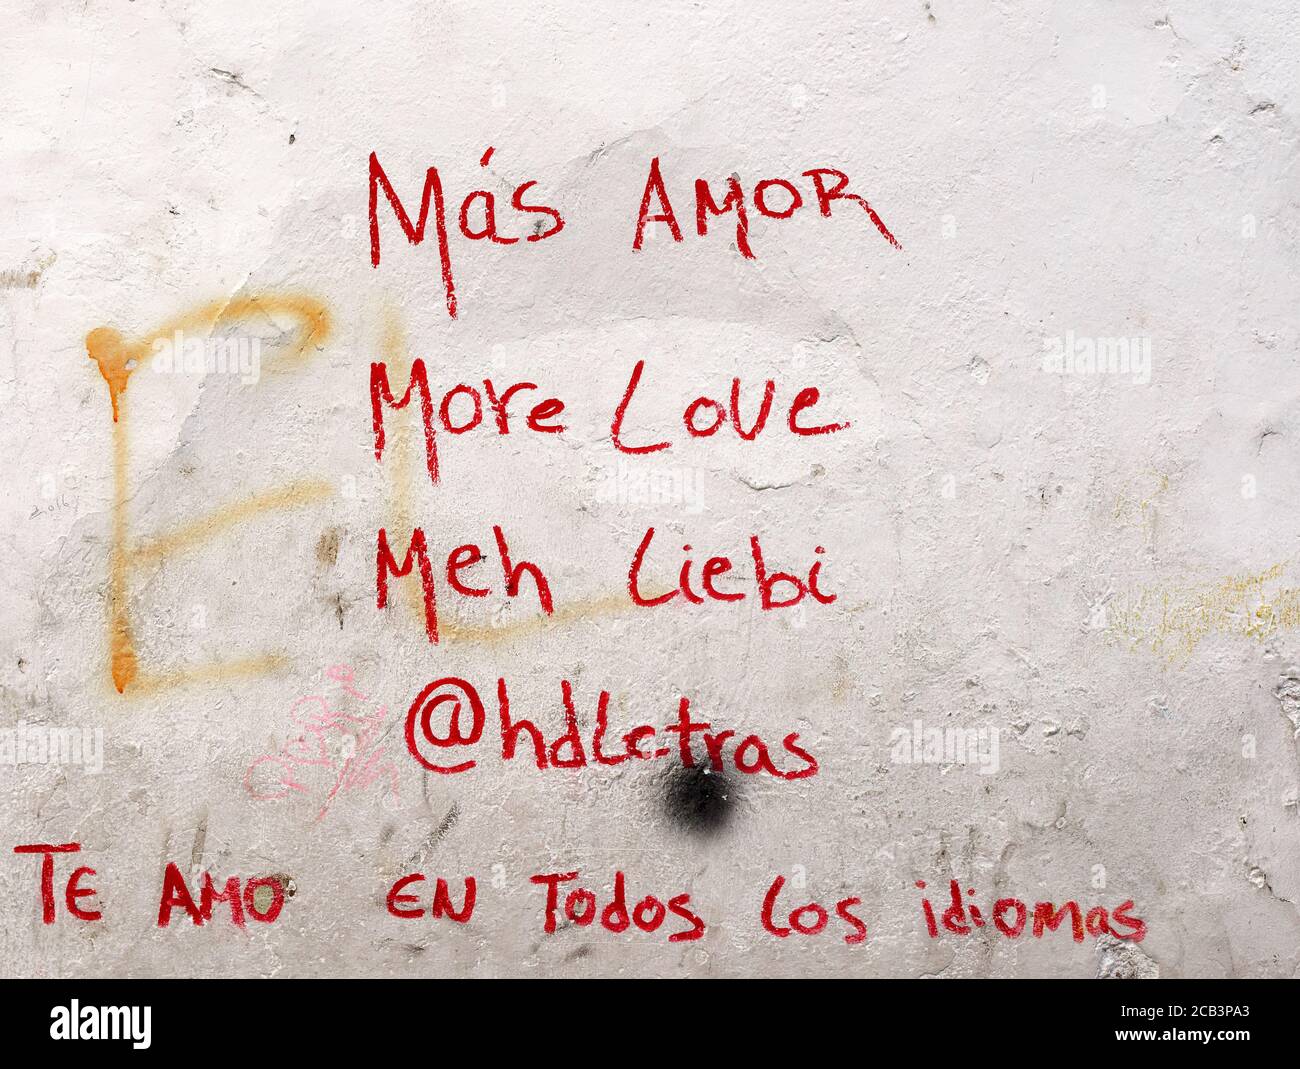 Más AMOR
More Love
Meh Liebi
@hdLetras
TE AMO EN TODOS LOS idiomas
alamy
Image ID: 2CB3PA3
www.alamy.com